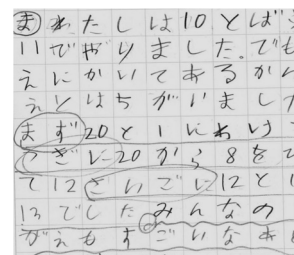 まわたしは10とば
11でやりました。でも
えにかいてあるかん
えとはちがいました
まず20と1にわけ
つぎに20から8をひ
て12さいごに12と1
13でしたみんなの
がえもすごいなあ